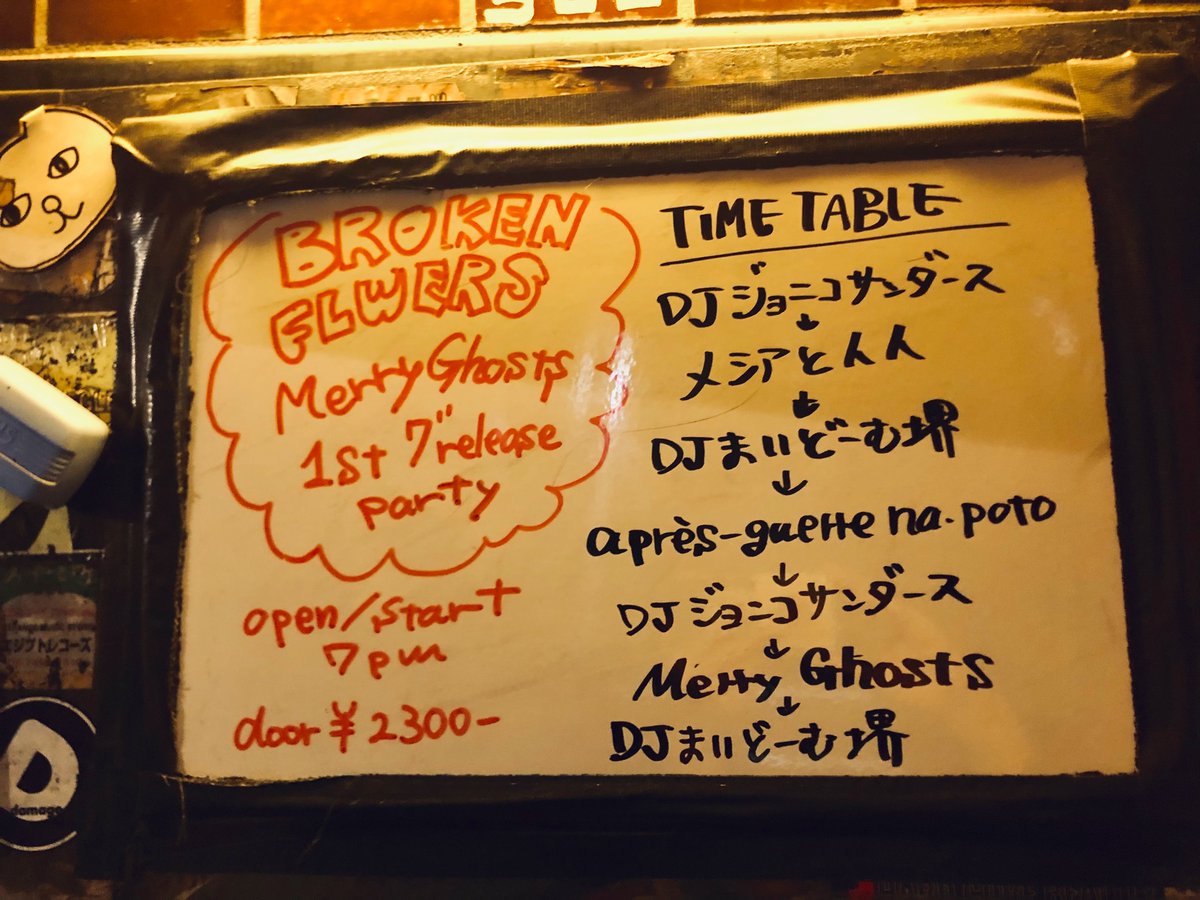 BROKEN
FLWERS
Merry Ghosts
1st 7"release
party
open/start
7pm
door ¥2300-
TIME TABLE
DJジョニコサンダース
↓
メシアと人人
↓
DJまいどーむ堺
↓
après-guerre na.poto
↓
DJジョニコサンダース
↓
Merry Ghosts
↓
DJまいどーむ堺
エジプトレコーズ
damage